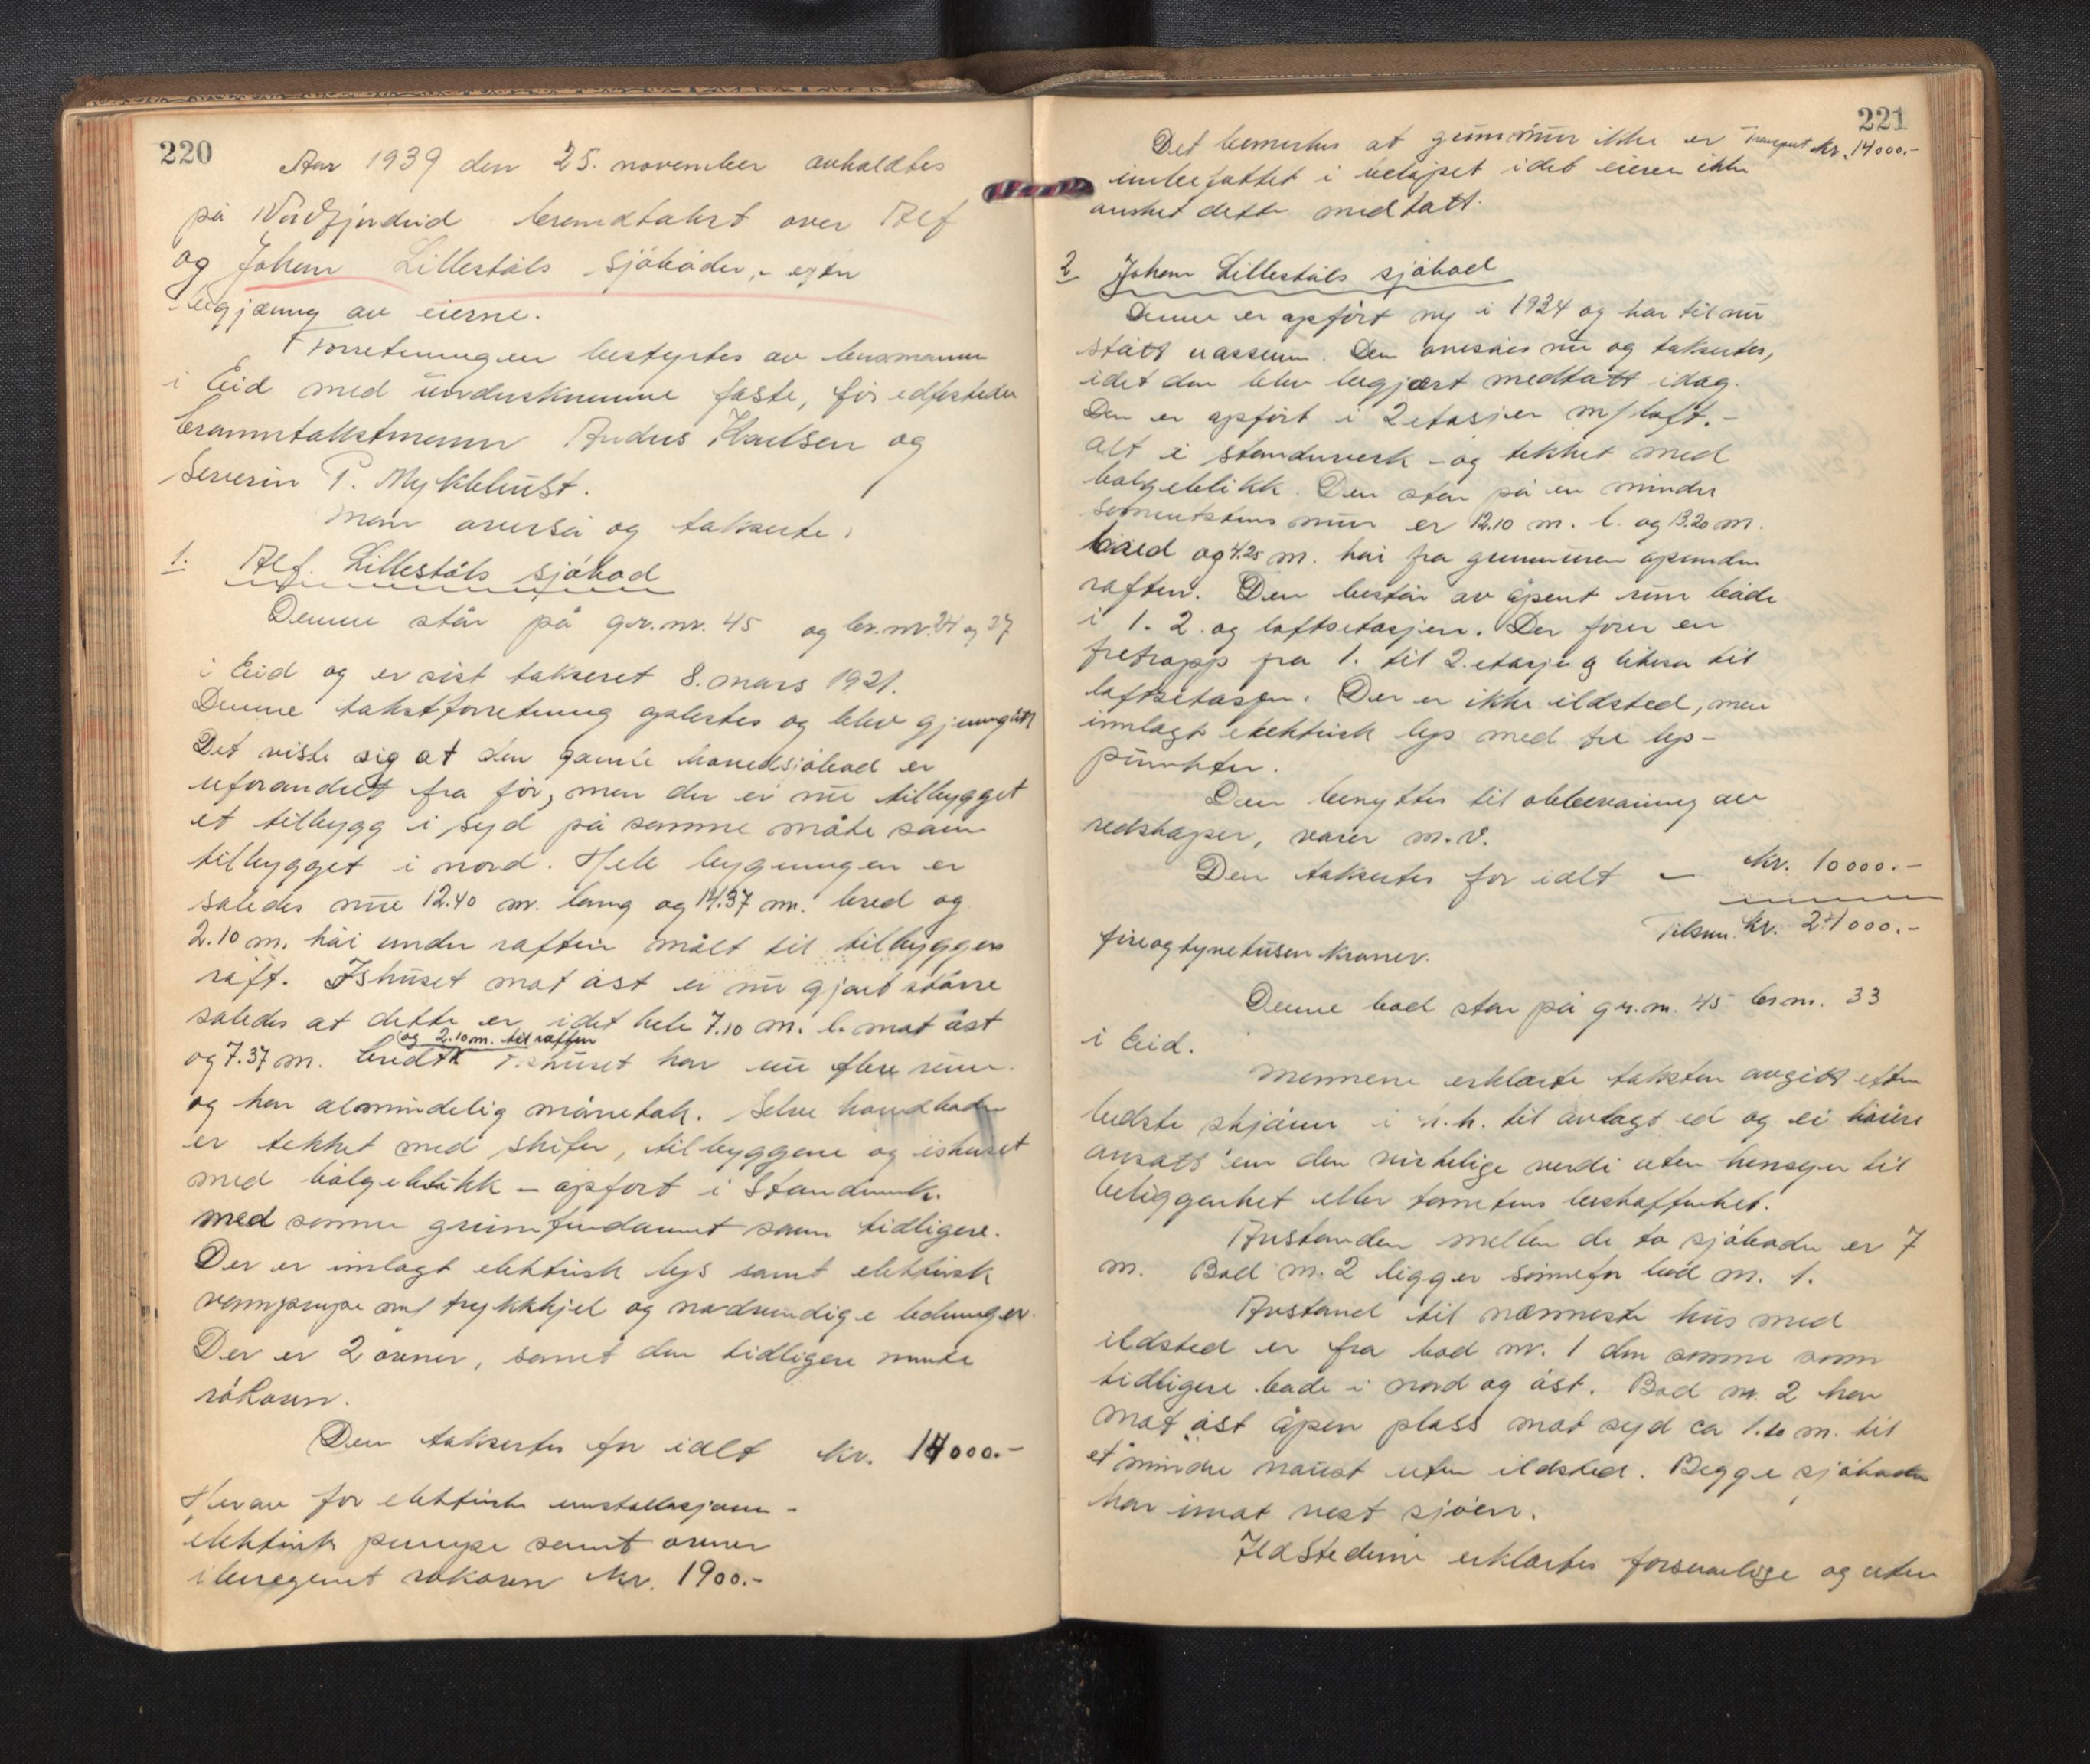 220
Aar 1939 den 25. november avholdtes
på Nordfjordeid branntakst over Alf
og Johan Lillestøls sjøboder, - efter
begjæring av eierne.
Forretningen bestyrtes av lensmannen
i Eid med underskrevne faste, før edfestede
branntakstmenn Andres Knutsen og
Severin P. Myklebust.
Man överså og takserte:
1. Alf. Lillestøls sjøbod
Denne står på gr.nr. 45 og br.nr. 24 og 27
i Eid og er sist taksert 8. mars 1921.
Denne takstforretning oplestes og blev gjennemgått
Det viste sig at den gamle hovedsjøbod er
uforandret fra før, men der er nu tilbygget
et tilbygg i syd på samme måte som
tilbygget i nord. Hele bygningen er
således nu 12.40 m. lang og 14.37 m. bred og
2.10 m. høi under raften målt til tilbyggets
raft. Ishuset mot øst er nu gjort større
således at dette er idet hele 7.10 m. l. mot øst
og 2.10 m. til raften
og 7.37 m. bredt. Ishuset har nu flere rum
og har almindelig mønetak. Selve hovedboden
er tekket med skifer, tilbyggene og ishuset
med bølgeblikk - opført i standverk.
med samme grunnfundament som tidligere.
Der er innlagt elektrisk lys samt elektrisk
vannpumpe m/ trykkkjel og nødvendige ledninger.
Der er 2 ovner, samt den tidligere murte
røkovn.
Den takseres for ialt kr. 14000.-
Herav for elektriske installasjoner -
elektrisk pumpe samt ovner
iberegnet røkovn kr. 1900.-
221
Det bemerkes at grunnmur ikke er Transport kr. 14000.-
innbefattet i beløpet idet eieren ikke
ønsket dette medtatt.
2 Johan Lillestøls sjøbod
Denne er opført ny i 1934 og har til nu
stått uassurert. Den oversåes nu og takseres,
idet den blev begjært medtatt idag.
Den er opført i 2 etasjer m/ loft. -
alt i standverk - og tekket med
bølgeblikk. Den står på en mindre
sementstens mur er 12.10 m. l. og 13.20 m.
bred og 4.25 m. høi fra grunnmuren op under
raften. Den består av åpent rum både
i 1. 2. og loftsetasjen. Der fører en
tretrapp fra 1. til 2. etasje og likesa til
loftsetasjen. Der er ikke ildsted, men
innlagt elektrisk lys med tre lys-
punkter.
Den benyttes til opbevaring av
redskaper, varer m.v.
Den takseres for ialt - kr. 10000.-
Tilsam. kr. 24000.-
fireogtyvetusen kroner.
Denne bod står på gr.nr. 45 br.nr. 33
i Eid.
Mennene erklærte taksten avgitt efter
bedste skjønn i h.h. til avlagt ed og ei høiere
ansatt enn den virkelige verdi uten hensyn til
beliggenhet eller tomtens beskaffenhet.
Avstanden mellem de to sjøboder er 7
m. Bod nr. 2 ligger sønnefor bod nr. 1.
Avstand til nærmeste hus med
ildsted er fra bod nr. 1 den samme som
tidligere både i nord og øst. Bod nr. 2 har
mot øst åpen plass mot syd ca 1.10 m. til
et mindre naust uten ildsted. Begge sjøboder
har imot vest sjøen.
Ildstedene erklærtes forsvarlige og uten